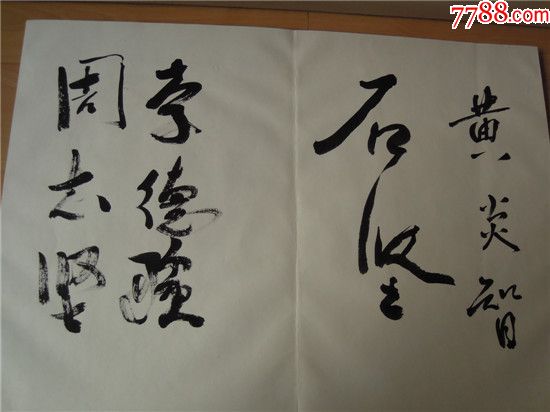 7788.com
黄炎智
石坚
李德强
周志坚